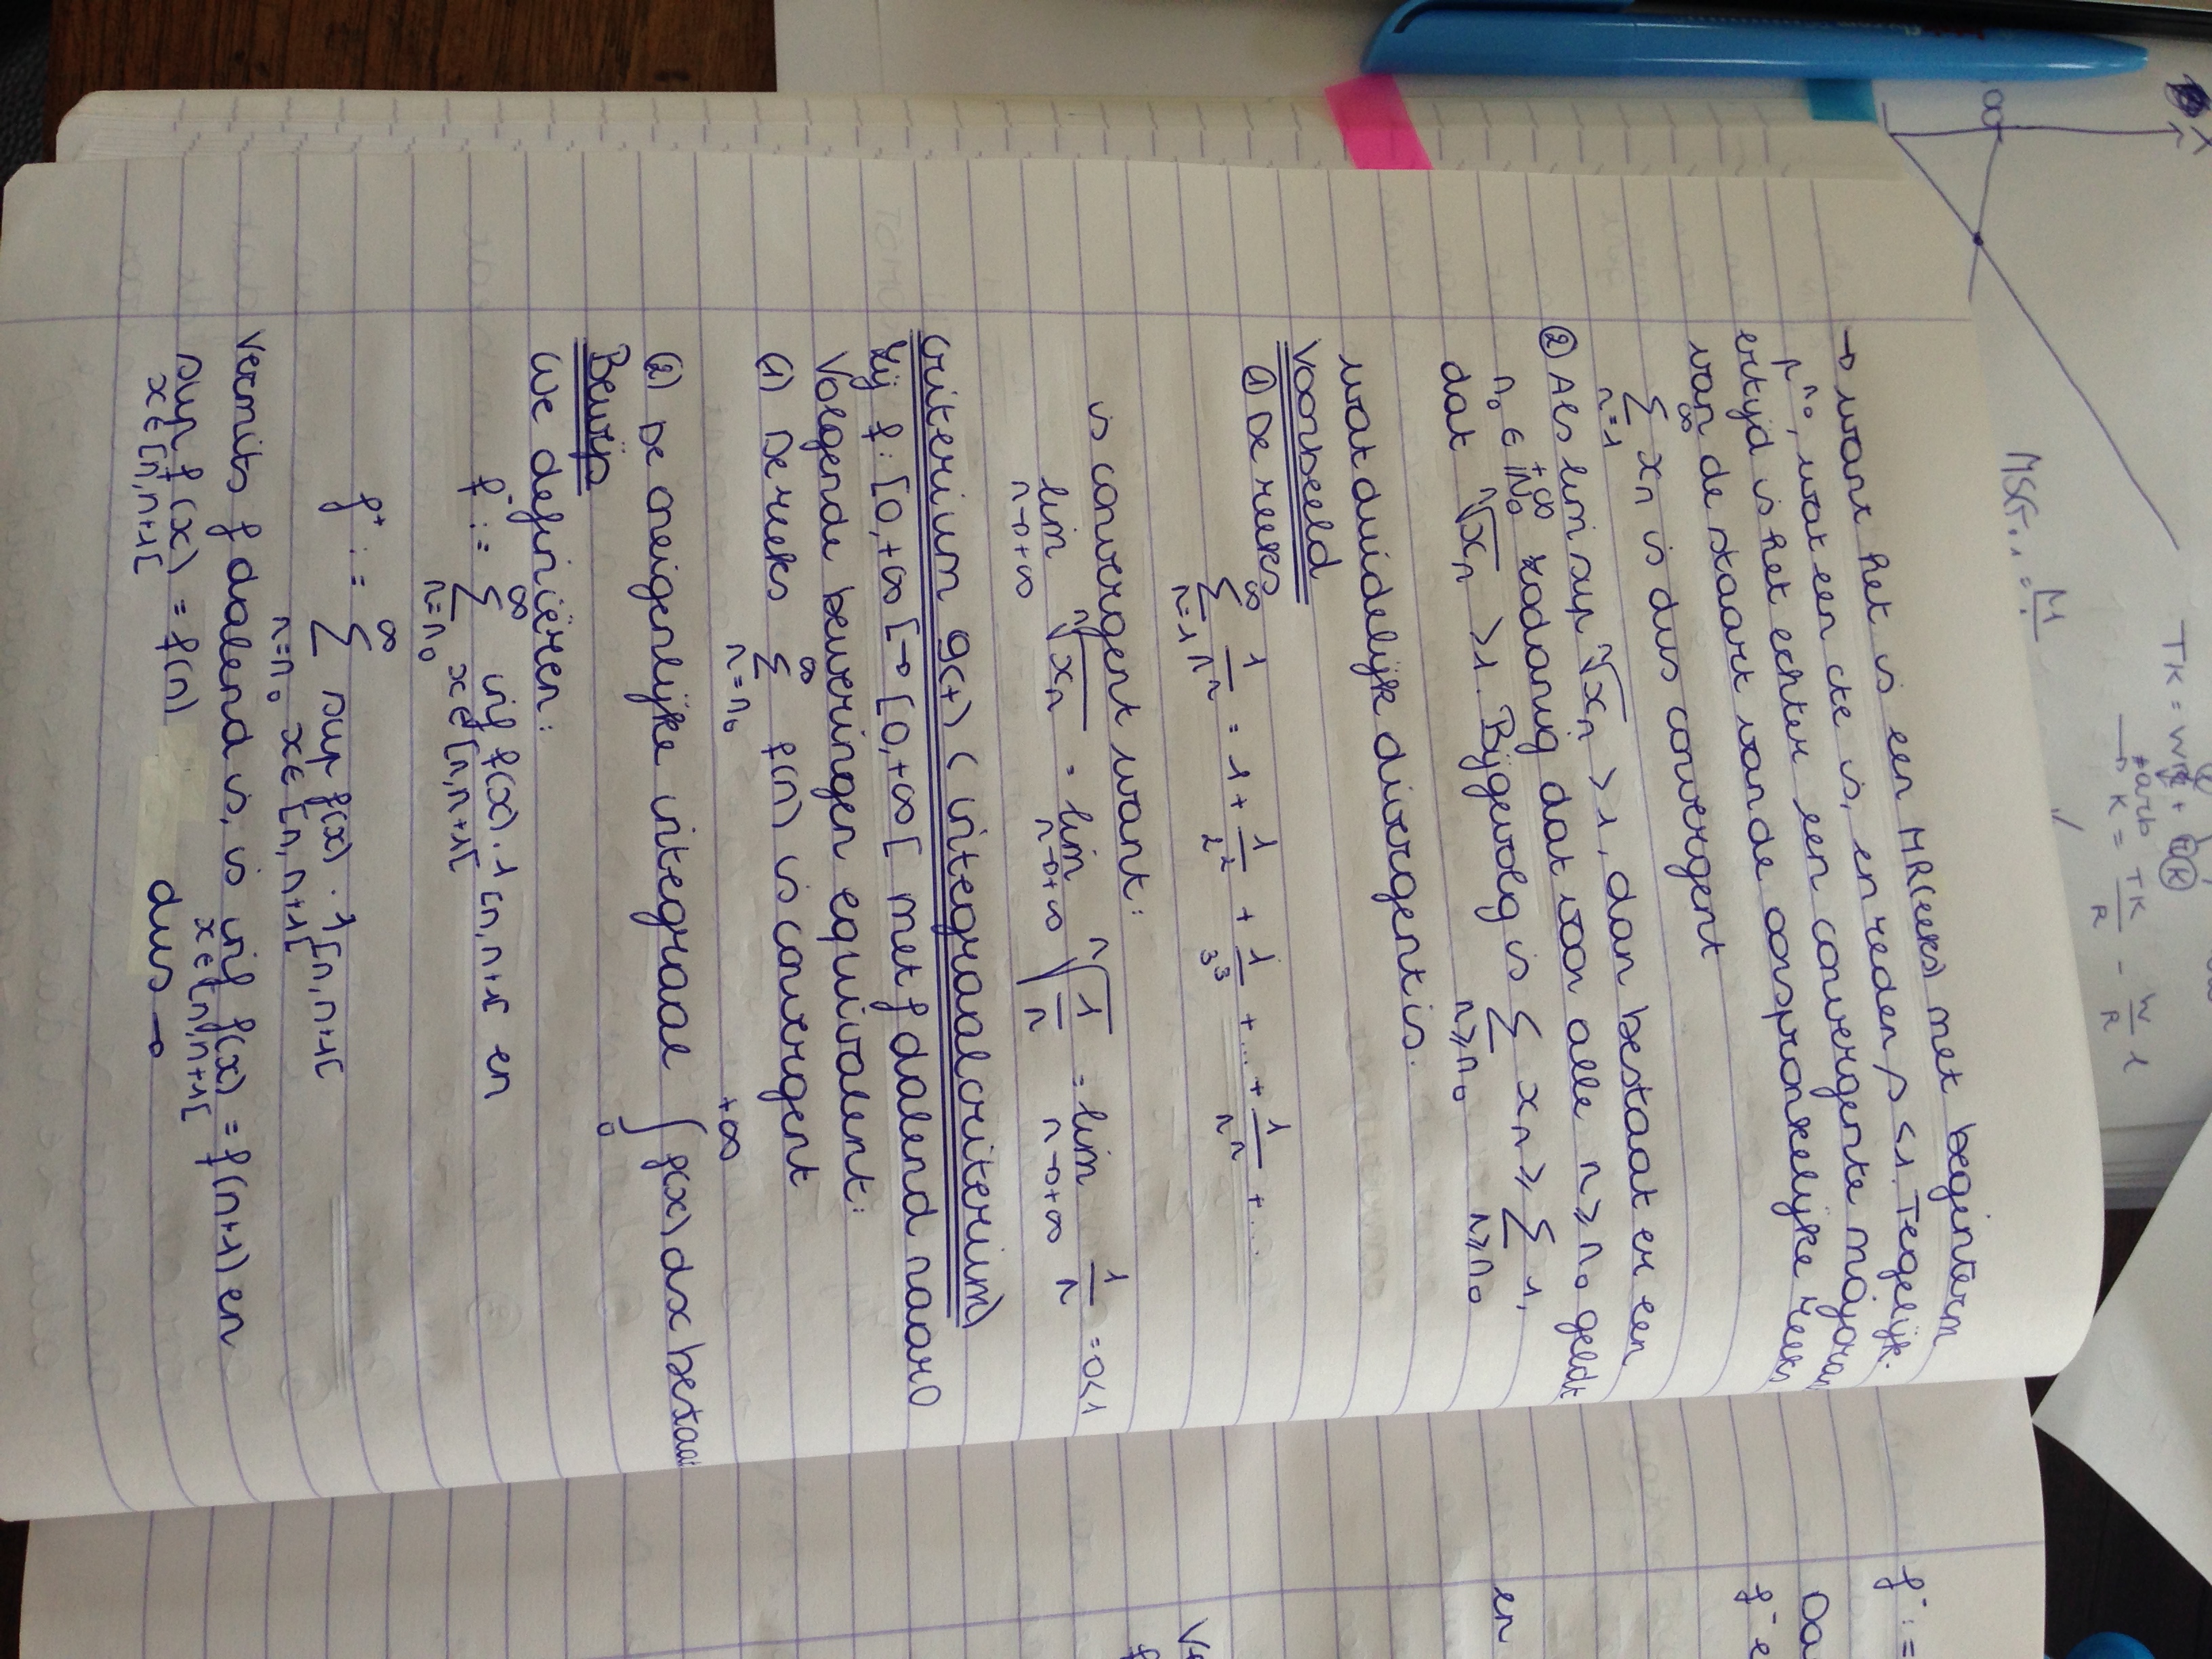 → want het is een MR(eeks) met beginterm
r^n₀, wat een cte is, en reden r < 1. Tegelijk-
ertijd is het echter een convergente majoran
van de staart van de oorspronkelijke reeks
∞
∑ xn is dus convergent
n=1
② Als lim sup ⁿ√xn > 1, dan bestaat er een
+∞
n₀ ∈ ℕ₀ zodanig dat voor alle n ≥ n₀ geldt
dat ⁿ√xn > 1. Bijgevolg is ∑ xn ≥ ∑ 1,
n≥n₀ n≥n₀
wat duidelijk divergent is.
Voorbeeld
① De reeks ∞∑n=1 1/nⁿ = 1 + 1/2² + 1/3³ + ... + 1/nⁿ + ...
is convergent want:
lim ⁿ√xn = lim ⁿ√1/nⁿ = lim 1/n = 0<1
n→+∞ n→+∞ n→+∞
Criterium 9(+) (integraalcriterium)
Zij f: [0,+∞[ → [0,+∞[ met f dalend naar 0
Volgende beweringen equivalent:
(1) De reeks ∞∑n=n₀ f(n) is convergent
(2) De oneigenlijke integraal ∫₀^+∞ f(x) dx bestaa
Bewijs
We definiëren:
f⁻ := ∞∑n=n₀ inf f(x) . 1[n,n+1[ en
x∈[n,n+1[
f⁺ := ∞∑n=n₀ sup f(x) . 1[n,n+1[
x∈[n,n+1[
Vermits f dalend is, is inf f(x) = f(n+1) en
x∈[n,n+1[
sup f(x) = f(n) dus →
x∈[n,n+1[
f⁻ :=
Da
f⁻ e
en
Ve
MSG
M
TK = w
K = TK/R - w/R l